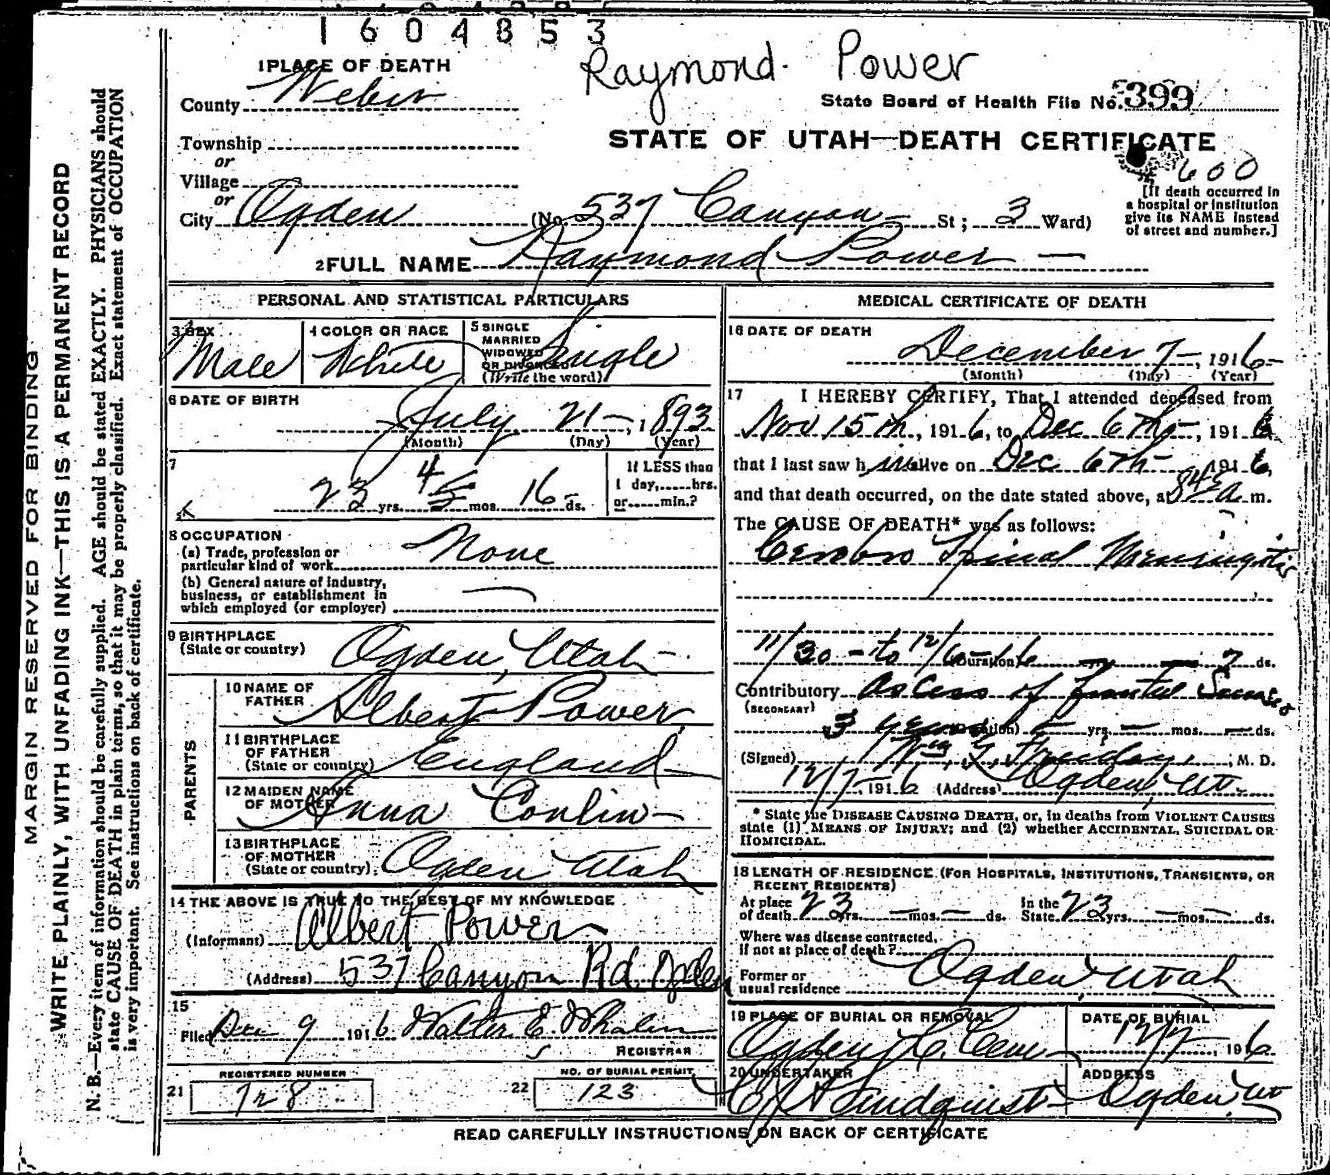 1604853
Raymond Power
1 PLACE OF DEATH
County Weber
State Board of Health File No. 399
STATE OF UTAH—DEATH CERTIFICATE
Township
or
Village
or
600
[If death occurred in
a hospital or institution
give its NAME instead
of street and number.]
City Ogden (No. 537 Canyon St; 3 Ward)
2 FULL NAME Raymond Power
PERSONAL AND STATISTICAL PARTICULARS
3 SEX Male
4 COLOR OR RACE White
5 SINGLE
MARRIED
WIDOWED
OR DIVORCED
(Write the word) Single
6 DATE OF BIRTH
July 21, 1893
(Month) (Day) (Year)
7
23 yrs. 4 5 mos. 16 ds.
If LESS than
1 day,.....hrs.
or.....min.?
8 OCCUPATION
(a) Trade, profession or
particular kind of work None
(b) General nature of industry,
business, or establishment in
which employed (or employer)
9 BIRTHPLACE
(State or country) Ogden, Utah
PARENTS
10 NAME OF
FATHER Albert Power
11 BIRTHPLACE
OF FATHER
(State or country) England
12 MAIDEN NAME
OF MOTHER Anna Conlin
13 BIRTHPLACE
OF MOTHER
(State or country) Ogden Utah
14 THE ABOVE IS TRUE TO THE BEST OF MY KNOWLEDGE
(Informant) Albert Power
(Address) 537 Canyon Rd. Ogden
15
Filed Dec 9 1916 Walter E. Whalen
REGISTRAR
REGISTERED NUMBER
21 728
NO. OF BURIAL PERMIT
22 123
MEDICAL CERTIFICATE OF DEATH
16 DATE OF DEATH
December 7, 1916
(Month) (Day) (Year)
17 I HEREBY CERTIFY, That I attended deceased from
Nov 15th, 1916, to Dec 6th, 1916
that I last saw him alive on Dec 6th 1916,
and that death occurred, on the date stated above, at 845 a m.
The CAUSE OF DEATH* was as follows:
Cerebro Spinal Meningitis
11/30 - to 12/6-16 (Duration) 7 ds.
Contributory Abscess of frontal Sinuses
(SECONDARY)
3 years (Duration) yrs. mos. ds.
(Signed) M. D.
12/7, 1916 (Address) Ogden, Ut.
* State the DISEASE CAUSING DEATH, or, in deaths from VIOLENT CAUSES
state (1) MEANS OF INJURY; and (2) whether ACCIDENTAL, SUICIDAL OR
HOMICIDAL.
18 LENGTH OF RESIDENCE (FOR HOSPITALS, INSTITUTIONS, TRANSIENTS, OR
RECENT RESIDENTS)
At place
of death 23 yrs. mos. ds.
In the
State 23 yrs. mos. ds.
Where was disease contracted,
if not at place of death?
Former or
usual residence Ogden, Utah
19 PLACE OF BURIAL OR REMOVAL
Ogden C. Cem
DATE OF BURIAL
12/7, 1916
20 UNDERTAKER
C J A Lindquist
ADDRESS
Ogden Ut
READ CAREFULLY INSTRUCTIONS ON BACK OF CERTIFICATE
MARGIN RESERVED FOR BINDING
WRITE PLAINLY, WITH UNFADING INK—THIS IS A PERMANENT RECORD
N. B.—Every item of information should be carefully supplied. AGE should be stated EXACTLY. PHYSICIANS should
state CAUSE OF DEATH in plain terms, so that it may be properly classified. Exact statement of OCCUPATION
is very important. See instructions on back of certificate.